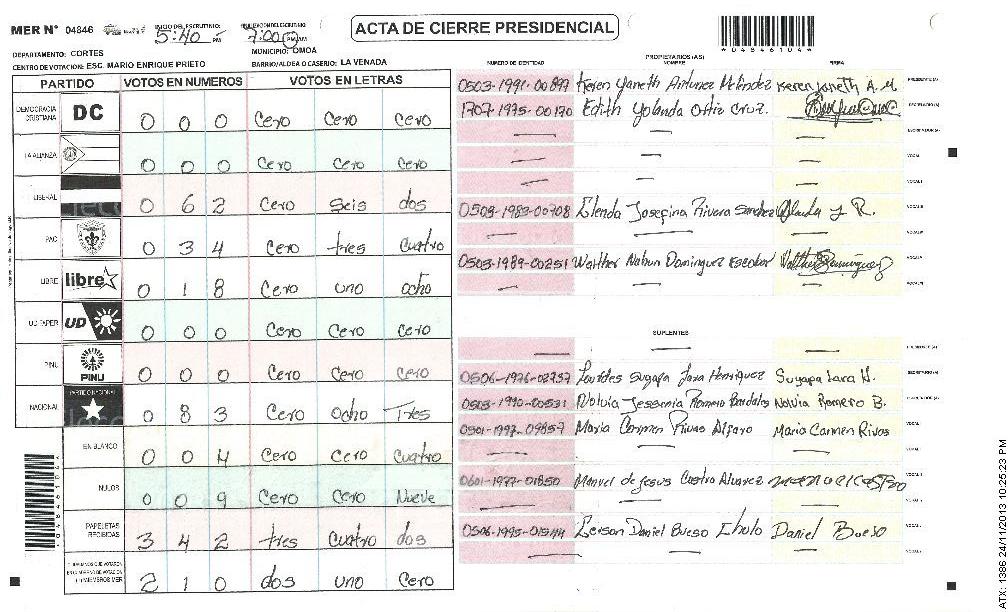 MER N° 04846 INICIO DEL ESCRUTINIO: 5:40 PM 7:00 PM
ACTA DE CIERRE PRESIDENCIAL
*048461044*
DEPARTAMENTO: CORTES MUNICIPIO: OMOA
CENTRO DE VOTACION: ESC. MARIO ENRIQUE PRIETO BARRIO/ALDEA O CASERIO: LA VENADA
PARTIDO VOTOS EN NUMEROS VOTOS EN LETRAS
DEMOCRACIA CRISTIANA DC 0 0 0 Cero Cero Cero
LA ALIANZA 0 0 0 Cero Cero Cero
LIBERAL 0 6 2 Cero Seis dos
PAC 0 3 4 Cero tres Cuatro
LIBRE libre 0 1 8 Cero uno ocho
UD FAPER UD 0 0 0 Cero Cero Cero
PINU PINU 0 0 0 Cero Cero Cero
NACIONAL PARTIDO NACIONAL 0 8 3 Cero Ocho Tres
EN BLANCO 0 0 4 Cero Cero Cuatro
NULOS 0 0 9 Cero Cero Nueve
PAPELETAS RECIBIDAS 3 4 2 tres Cuatro dos
2 1 0 dos uno Cero
PROPIETARIOS (AS)
NUMERO DE IDENTIDAD NOMBRE FIRMA
0503-1991-00897 Keren Yaneth Antunez Melendez Keren Janeth A. M. PRESIDENTE (A)
1707-1975-00170 Edith Yolanda Ortiz Cruz. SECRETARIO (A)
ESCRUTADOR (A)
VOCAL I
0503-1983-00708 Elenda Josefina Rivera Sanchez
0503-1989-00251 Walther Nahun Dominguez Escobar Walther Dominguez
SUPLENTES
PRESIDENTE (A)
0506-1976-02737 Lourdes Suyapa Jara Henriquez Suyapa Jara H. SECRETARIO (A)
0503-1990-00531 Nolvia Jessenia Romero Bardales Nolvia Romero B. ESCRUTADOR (A)
0501-1997-09857 Maria Carmen Rivas Alfaro Maria Carmen Rivas
0601-1977-01850 Manuel de Jesus Castro Alvarez
0506-1995-01544 Daniel Bueso Daniel Bueso
ATX: 1386 24/11/2013 10:25:23 PM